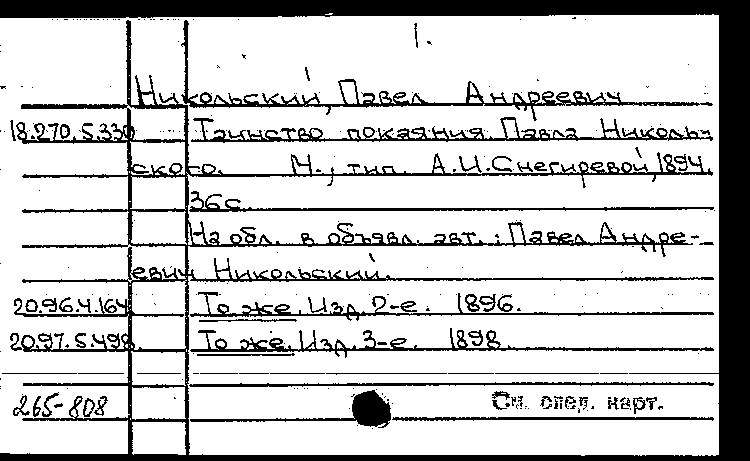 1.
Никольский, Павел Андреевич
18.270.5.330 Таинство покаяния Павла Николь-
ского. М., тип. А.И.Снегиревой, 1894.
36с.
На обл. в объявл. авт.: Павел Андре-
евич Никольский.
20.96.4.164 То же. Изд. 2-е. 1896.
20.97.5.498. То же. Изд. 3-е. 1898.
265-808 См. след. карт.